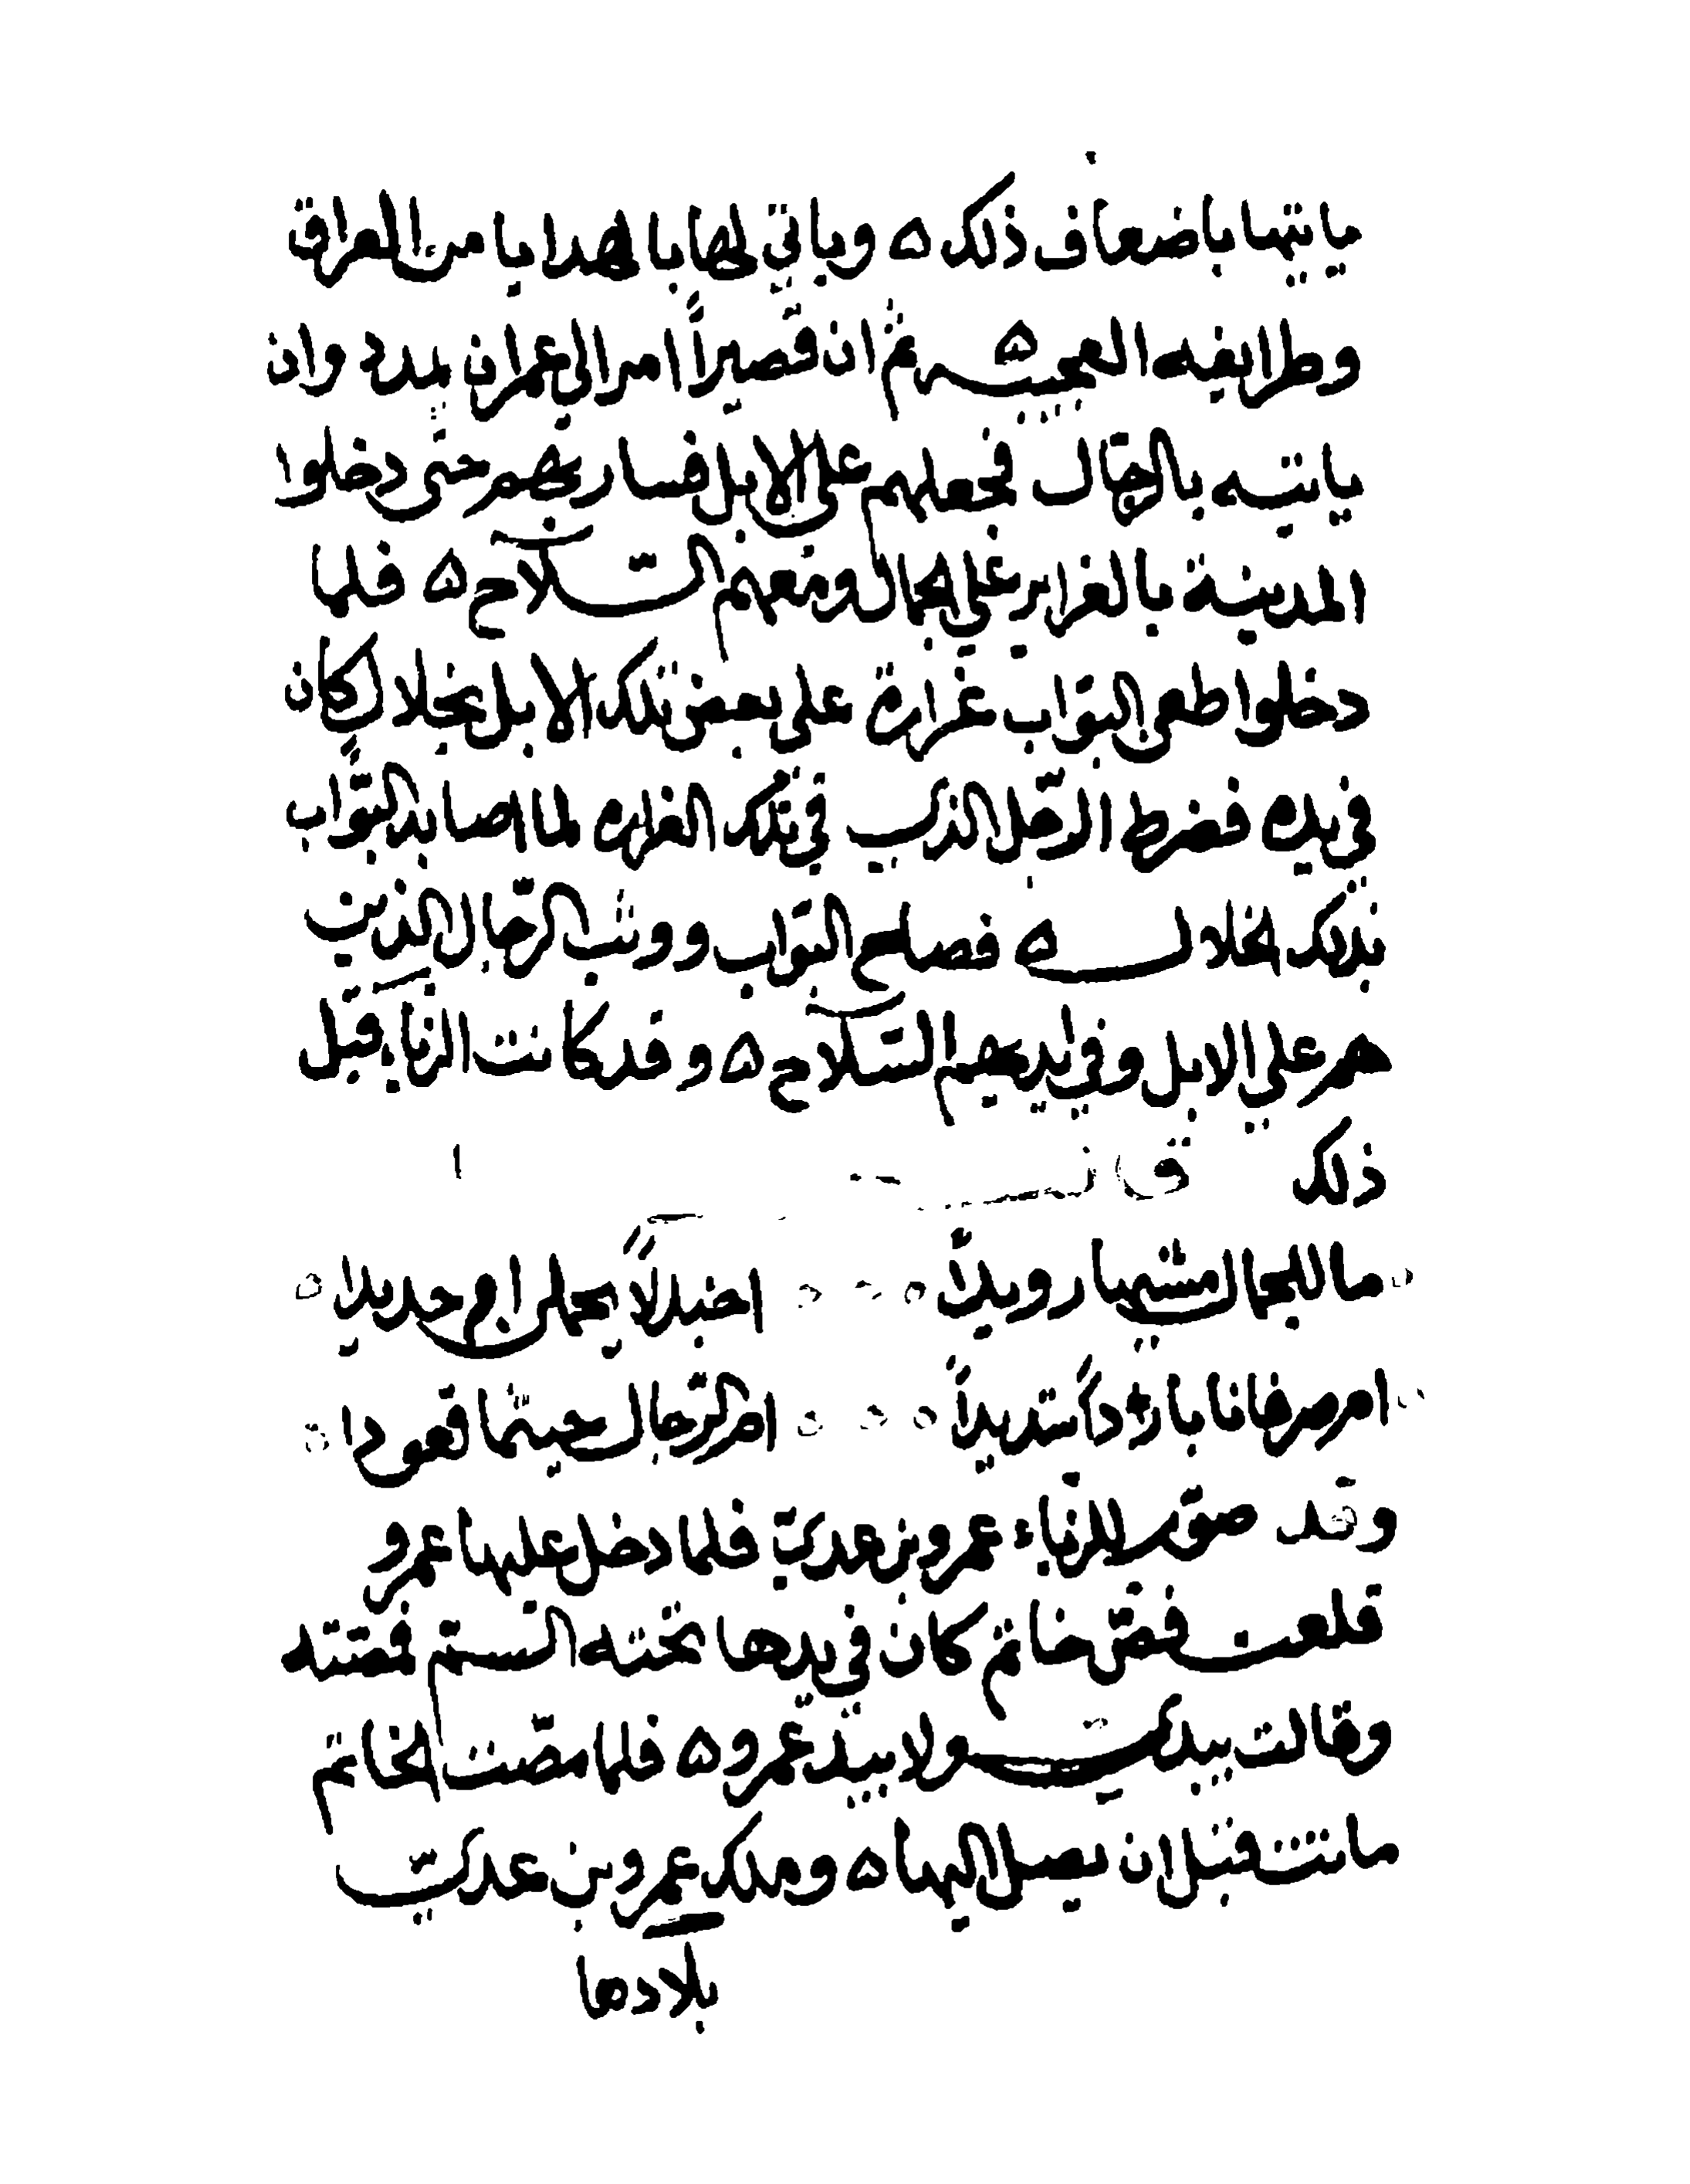 ياتيها باضعاف ذلك ۵ وياتي لها بالهدايا من العراق
وطرايفه العجيبه ۵ ثم ان قصيراً امر الي عمر ان
ياتيه بالرجال فجعلهم علي الابل فسار بهم حتى دخلوا
المدينة بالغراير علي الجمال ومعهم السلاح ۵ فلما
دخلوا طعن البوّاب غرارة علي بعض تلك الابل بخلال كان
في يده فضرط الرجل الذي في تلك الغراره لما اصابه البوّاب
بذلك الخلال ۵ فصاح البوّاب ووثب الرّجال الذين
هم علي الابل وفي ايديهم السّلاح ۵ وقد كانت الزبّاء قبل
ذلك
ما للجمال مشيها رويداً ۵ اجندلاً يحملن ام حديدا
ام صرفانا بارداً شديداً ۵ ام الرّجال جثّما قعودا
وقد صوّر للزبّاء عمرو بن عديّ فلما دخل عليها عمرو
قلعت فصّ خاتم كان في يدها تحته السّم فمصّته
وقالت بيدي ولا بيد عمرو ۵ فلما مصّت الخاتم
ماتت قبل ان يصل اليها ۵ وملك عمرو بن عدي
بلادها